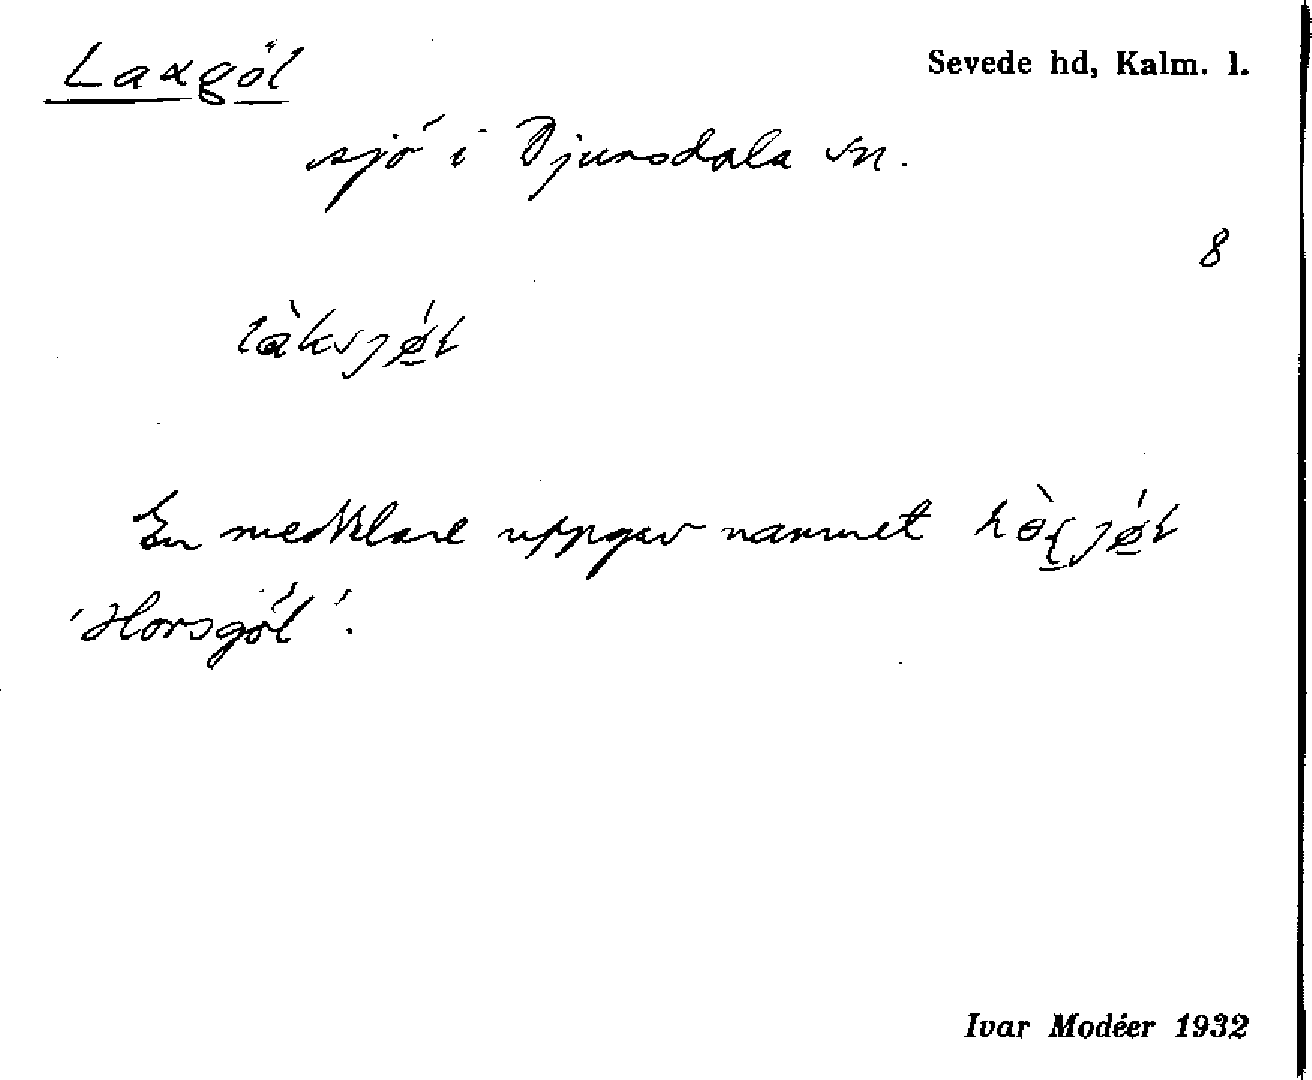 Laxgöl
Sevede hd, Kalm. l.
sjö i Djursdala sn.
8
làksjǿ̲l
En meddelare uppgav namnet
'Horsgöl'.
Ivar Modéer 1932